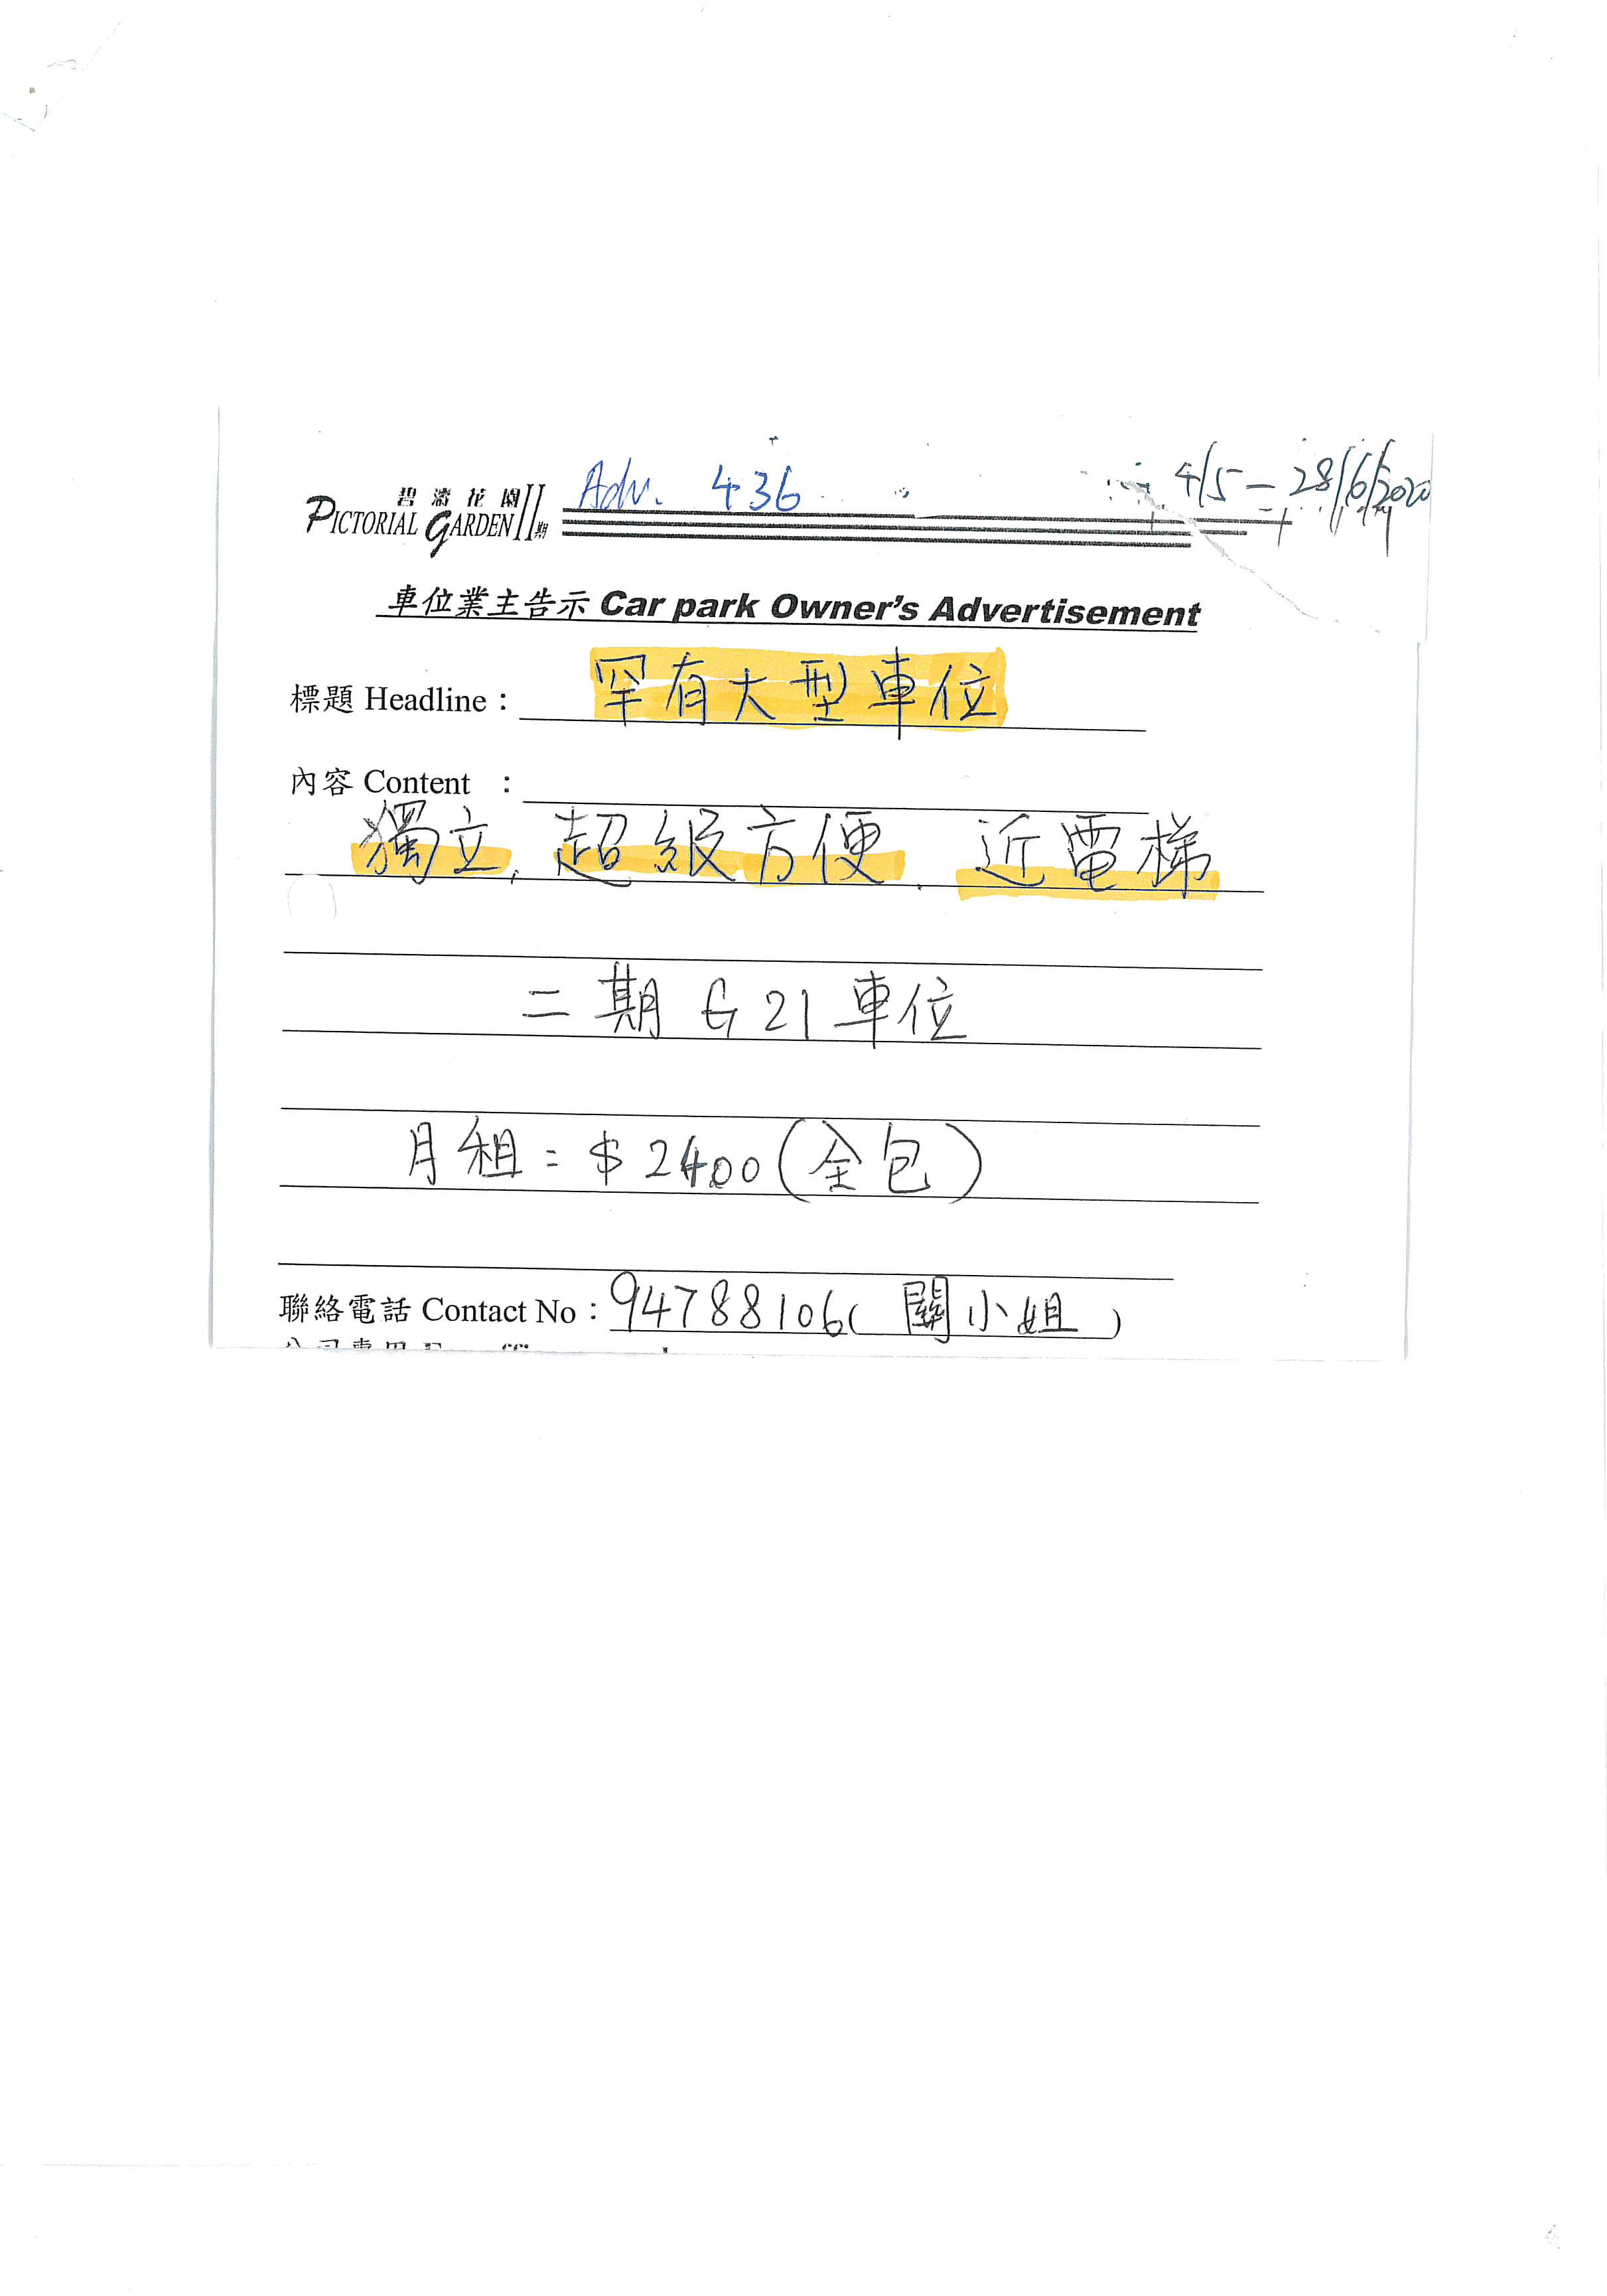 Adv. 436
4/5 - 28/6/2020
碧濤花園
PICTORIAL GARDEN II期
車位業主告示 Car park Owner's Advertisement
標題 Headline : 罕有大型車位
內容 Content :
獨立, 超級方便, 近電梯
二期 G21 車位
月租 : $2400 (全包)
聯絡電話 Contact No : 94788106 ( 關小姐 )